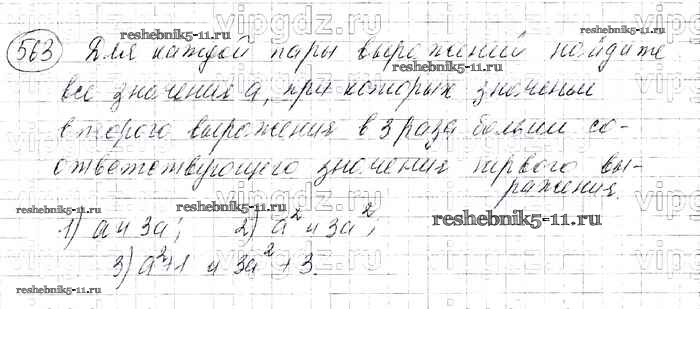 vipgdz.ru
reshebnik5-11.ru
563 Для каждой пары выражений найдите
все значения a, при которых значение
второго выражения в 3 раза больше со-
ответствующего значения первого вы-
ражения.
reshebnik5-11.ru
reshebnik5-11.ru
reshebnik5-11.ru
1) a и 3a; 2) a² и 3a²;
3) a²+1 и 3a²+3.
reshebnik5-11.ru
reshebnik5-11.ru